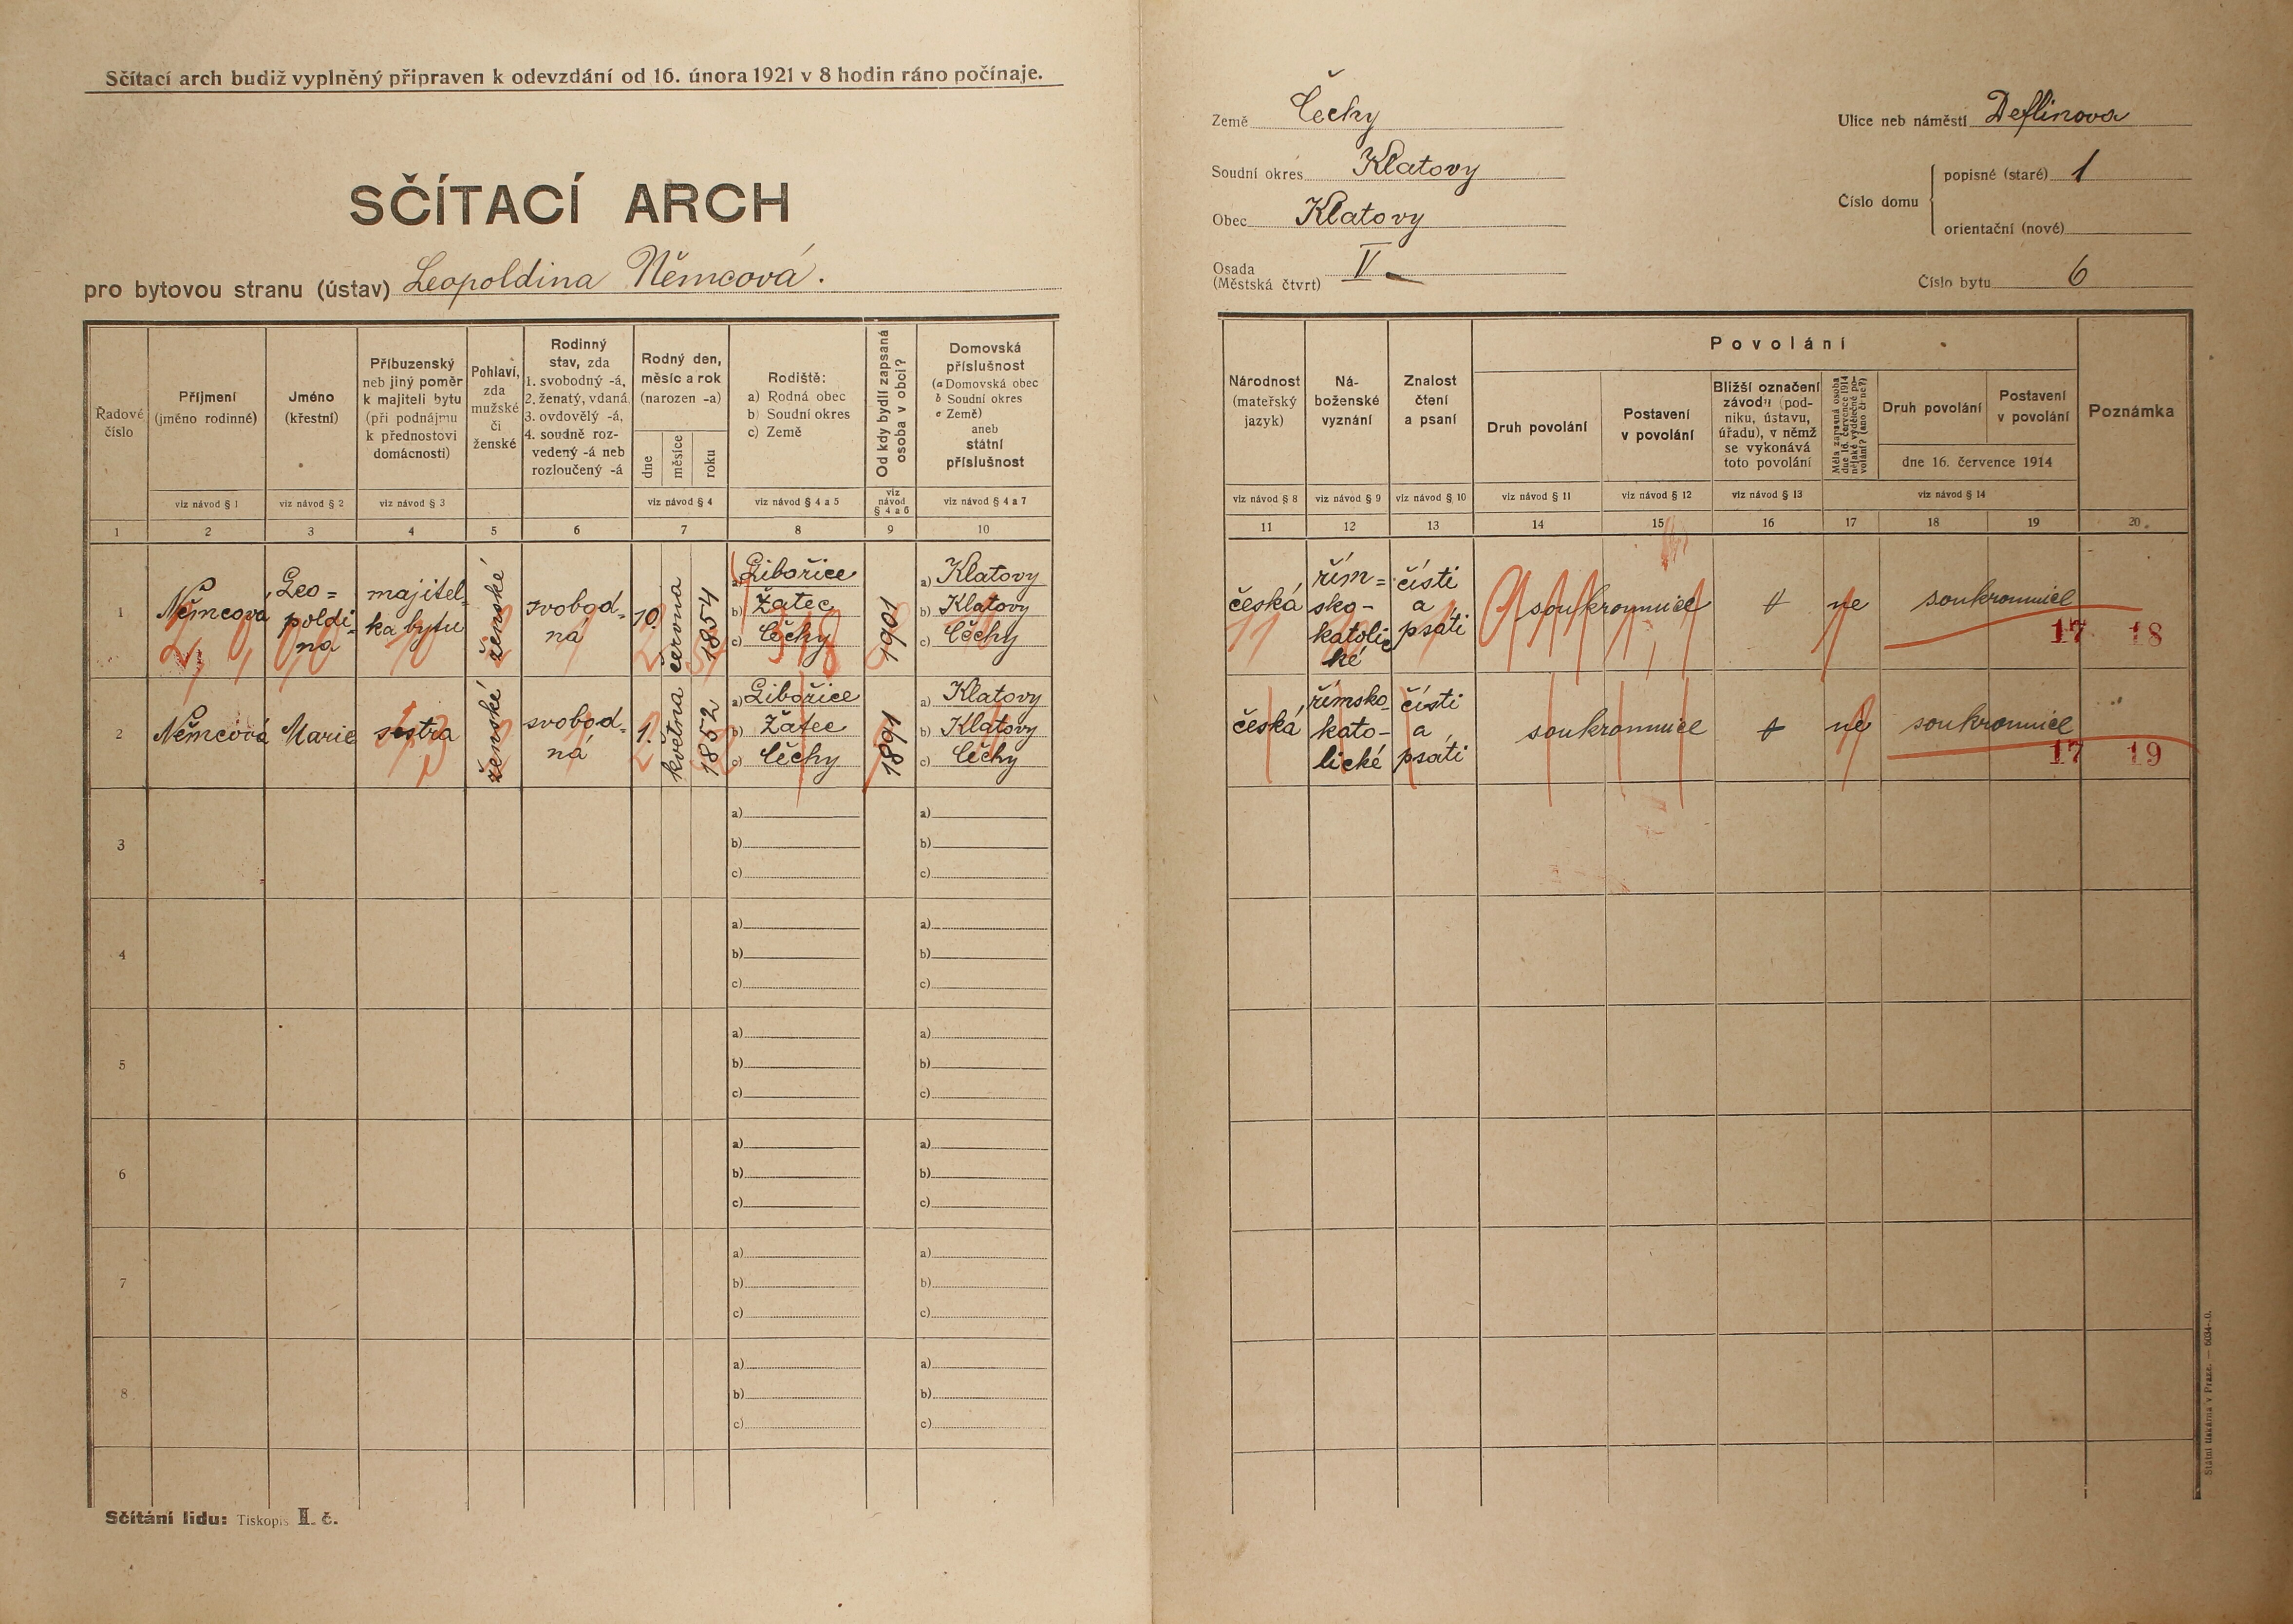 Sčítací arch budiž vyplněný připraven k odevzdání od 16. února 1921 v 8 hodin ráno počínaje.
SČÍTACÍ ARCH
pro bytovou stranu (ústav) Leopoldina Němcová.
Země Čechy
Soudní okres Klatovy
Obec Klatovy
Osada
(Městská čtvrt) V
Ulice neb náměstí Deflinova
Číslo domu
popisné (staré) 1
orientační (nové)
Číslo bytu 6
Řadové
číslo
Příjmení
(jméno rodinné)
Jméno
(křestní)
Příbuzenský
neb jiný poměr
k majiteli bytu
(při podnájmu
k přednostovi
domácnosti)
Pohlaví,
zda
mužské
či
ženské
Rodinný
stav, zda
1. svobodný -á,
2. ženatý, vdaná,
3. ovdovělý -á,
4. soudně roz-
vedený -á neb
rozloučený -á
Rodný den,
měsíc a rok
(narozen -a)
dne
měsíce
roku
Rodiště:
a) Rodná obec
b) Soudní okres
c) Země
Od kdy bydlí zapsaná
osoba v obci?
Domovská
příslušnost
(a Domovská obec
b Soudní okres
c Země)
aneb
státní
příslušnost
viz návod § 1
viz návod § 2
viz návod § 3
viz návod § 4
viz návod § 4 a 5
viz
návod
§ 4 a 6
viz návod § 4 a 7
1 2 3 4 5 6 7 8 9 10
Národnost
(mateřský
jazyk)
Ná-
boženské
vyznání
Znalost
čtení
a psaní
Povolání
Druh povolání
Postavení
v povolání
Bližší označení
závodu (pod-
niku, ústavu,
úřadu), v němž
se vykonává
toto povolání
Měla zapsaná osoba
dne 16. července 1914
nějaké výdělečné po-
volání? (ano či ne?)
Druh povolání
Postavení
v povolání
dne 16. července 1914
Poznámka
viz návod § 8
viz návod § 9
viz návod § 10
viz návod § 11
viz návod § 12
viz návod § 13
viz návod § 14
11 12 13 14 15 16 17 18 19 20
1
Němcová
Leo=
poldi-
na
majitel-
ka bytu
ženské
svobod-
ná
10.
června
1854
a) Libořice
b) Žatec
c) Čechy
1901
a) Klatovy
b) Klatovy
c) Čechy
česká
řím=
sko-
katolic
ké
čísti
a
psáti
soukromnice
ne
soukromnice
17 18
2
Němcová
Marie
sestra
ženské
svobod-
ná
1.
května
1852
a) Libořice
b) Žatec
c) Čechy
1891
a) Klatovy
b) Klatovy
c) Čechy
česká
římsko-
kato-
lické
čísti
a
psáti
soukromnice
ne
soukromnice
17 19
3
a) a)
b) b)
c) c)
4
a) a)
b) b)
c) c)
5
a) a)
b) b)
c) c)
6
a) a)
b) b)
c) c)
7
a) a)
b) b)
c) c)
8
a) a)
b) b)
c) c)
Sčítání lidu: Tiskopis II. č.